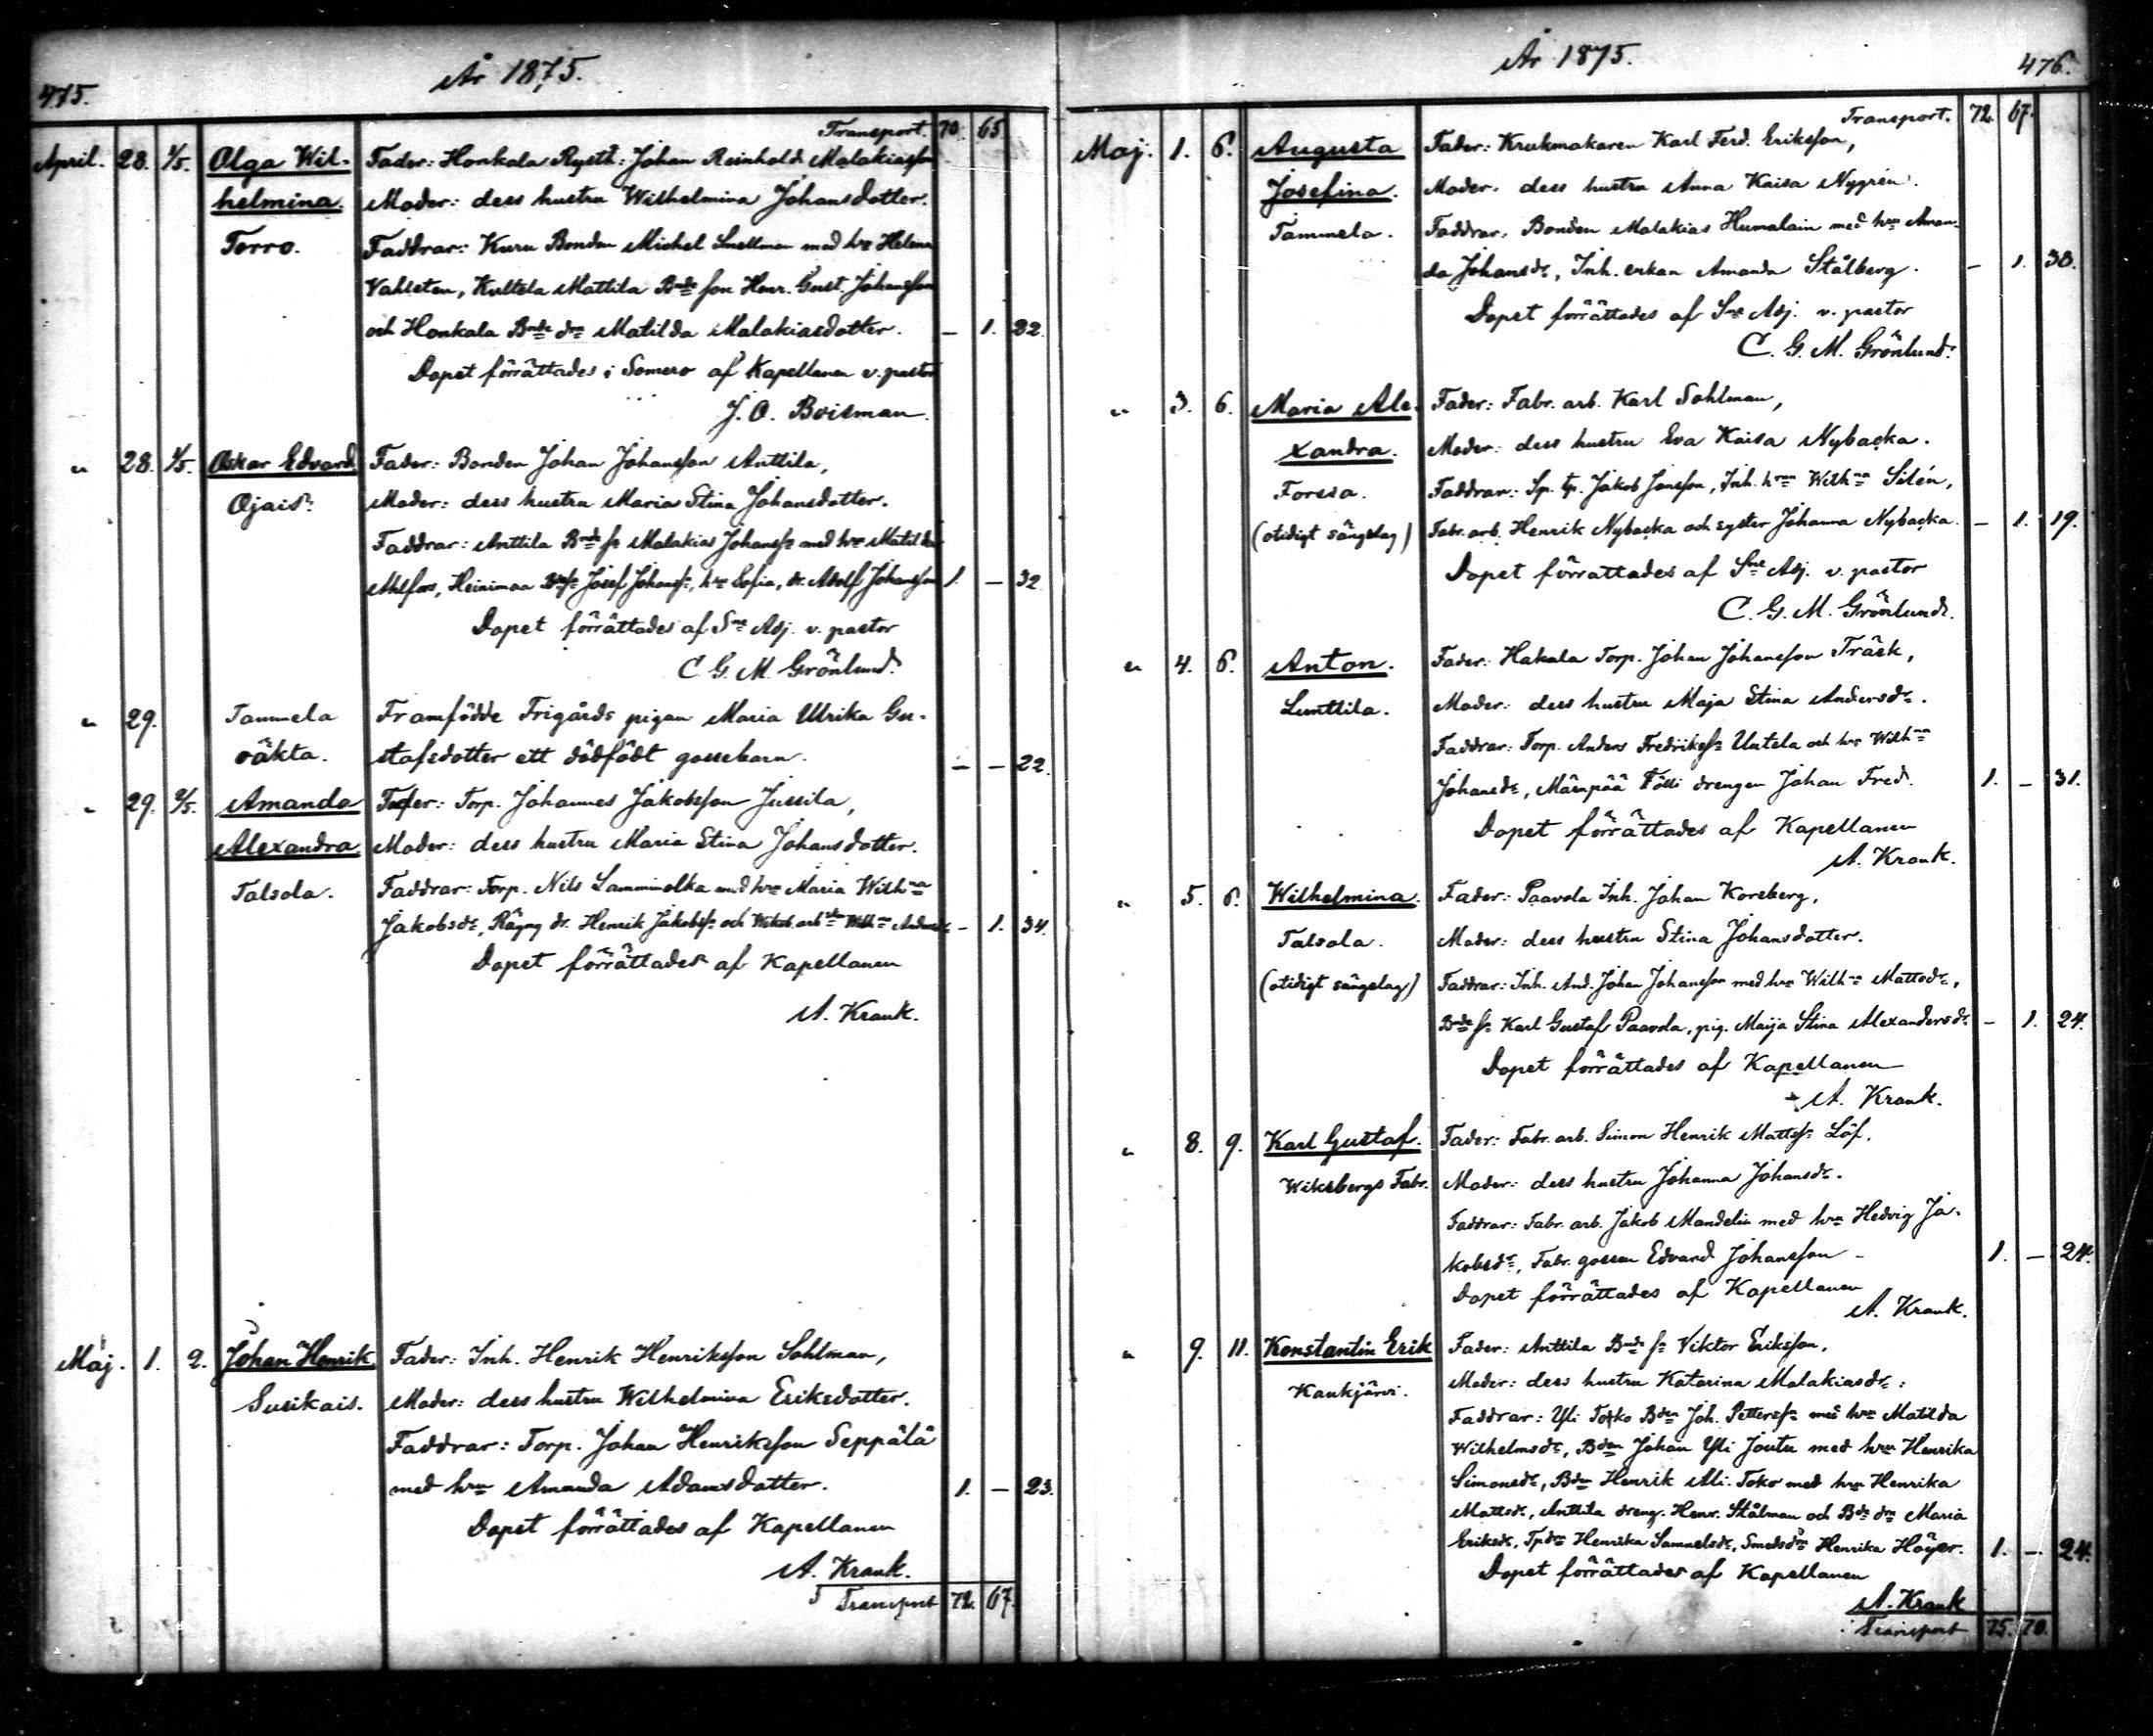 475.
År 1875.
Transport. 70. 65
April. 28. 1/5. Olga Wil- Fader: Honkala Rysth: Johan Reinhold Malakiasson
helmina. Moder: dess hustru Wilhelmina Johansdotter.
Torro. Faddrar: Kuru Bonden Michel Snellman med hru Helena
Vahlsten, Kultela Mattila Bnde son Henr. Gust. Johansson
och Honkala Bnde dra Matilda Malakiasdotter. – 1. 22.
Dopet förrättades i Somero af Kapellanen v. pastor
J. O. Boisman.
" 28. 1/5. Oskar Edvard Fader: Bonden Johan Johansson Anttila,
Ojais. Moder: dess hustru Maria Stina Johansdotter.
Faddrar: Anttila Bnde sn Malakias Johanss. med hru Matilda
Ahlfors, Heinimaa Josef Johanss., hru Sofia, dr. Adolf Johansson 1. – 32.
Dopet förrättades af Sne Adj. v. pastor
C. G. M. Grönlund.
" 29. Tammela Framfödde Frigårds pigan Maria Ulrika Gu-
oäkta. stafsdotter ett dödfödt gossebarn. – – 22.
" 29. 2/5. Amanda Fader: Torp. Johannes Jakobsson Jussila,
Alexandra Moder: dess hustru Maria Stina Johansdotter.
Talsola. Faddrar: Torp. Nils Lamminolka med hru Maria Wilhna
Jakobsdr, dr. Henrik Jakobss. och Wilhna – 1. 34.
Dopet förrättades af Kapellanen
A. Krank.
Maj. 1. 2. Johan Henrik Fader: Inh. Henrik Henriksson Sohlman,
Susikais. Moder: dess hustru Wilhelmina Eriksdotter.
Faddrar: Torp. Johan Henriksson Seppälä
med hru Amanda Adamsdotter. 1. – 23.
Dopet förrättades af Kapellanen
A. Krank.
Transport 72. 67.
År 1875.
476.
Transport. 72. 67.
Maj. 1. 6. Augusta Fader: Krukmakaren Karl Ferd. Eriksson,
Josefina. Moder. dess hustru Anna Kaisa Nygrén.
Tammela. Faddrar. Bonden Malakias Humalain med hru Aman-
da Johansdr, Inh. enkan Amanda Stålberg. – 1. 38.
Dopet förrättades af Sne Adj. v. pastor
C. G. M. Grönlund.
" 3. 6. Maria Ale- Fader: Fabr. arb. Karl Sohlman,
xandra. Moder: dess hustru Eva Kaisa Nybacka.
Forssa. Faddrar: Sp. tp. Jakob Jansson, Inh. hrun Wilhna Silén,
(otidigt sängelag) Fabr. arb. Henrik Nybacka och syster Johanna Nybacka. – 1. 19.
Dopet förrättades af Sne Adj. v. pastor
C. G. M. Grönlund.
" 4. 6. Anton. Fader: Hakala Torp. Johan Johansson Träsk,
Lunttila. Moder: dess hustru Maja Stina Andersdr.
Faddrar: Torp. Anders Fredrikss. Untela och hru Wilhna
Johansdr, Märnpää Fölli drengen Johan Fred. 1. – 31.
Dopet förrättades af Kapellanen
A. Krank.
" 5. 6. Wilhelmina. Fader: Paavola Inh. Johan Korsberg,
Talsola. Moder: dess hustru Stina Johansdotter.
(otidigt sängelag) Faddrar: Inh. And. Johan Johansson med hru Wilhna Mattsdr,
Bnde sn Karl Gustaf Paavola, pig. Maija Stina Alexandersdr – 1. 24.
Dopet förrättades af Kapellanen
A. Krank.
" 8. 9. Karl Gustaf. Fader: Fabr. arb. Simon Henrik Mattss. Löf,
Wiksbergs Fabr. Moder: dess hustru Johanna Johansdr.
Faddrar: Fabr. arb. Jakob Mandelin med hru Hedvig Ja-
kobsdr, Fabr. gossen Edvard Johansson – 1. – 24.
Dopet förrättades af Kapellanen
A. Krank.
" 9. 11. Konstantin Erik Fader: Anttila Bnde sn Viktor Eriksson,
Kaukjärvi. Moder: dess hustru Katarina Malakiasdr:
Faddrar: Yli Torko Bdn Joh. Petterss. med hru Matilda
Wilhelmsdr, Bdn Johan Yli Joutu med hru Henrika
Simonsdr, Bdn Henrik Ali-Toko med hru Henrika
Mattsdr., Anttila dreng. Henr. Stålman och Bde dra Maria
Eriksdr, Tpdra Henrika Samuelsdr, Smedsdra Henrika Höijer. 1. – 24.
Dopet förrättades af Kapellanen
A. Krank
Transport 75. 70.